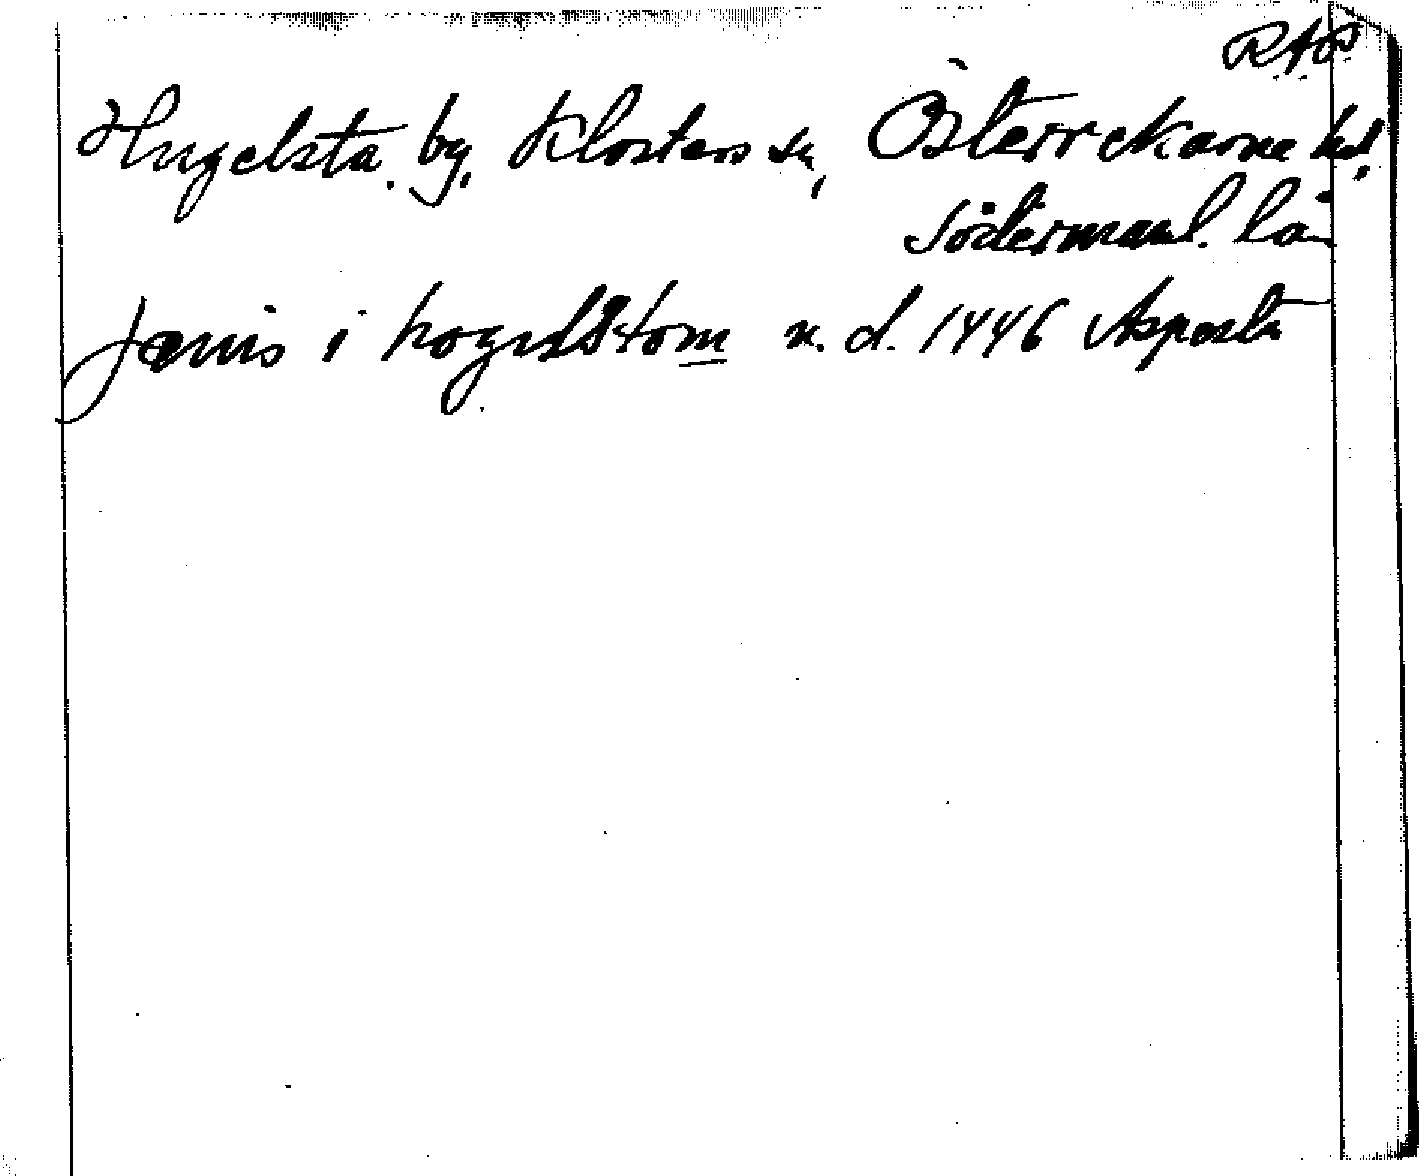 RAP
Hugelsta. by, Klosters sn, Österrekarne hd,
Södermanl. län
Jönis i hogilstom u. d. 1446 Asposta